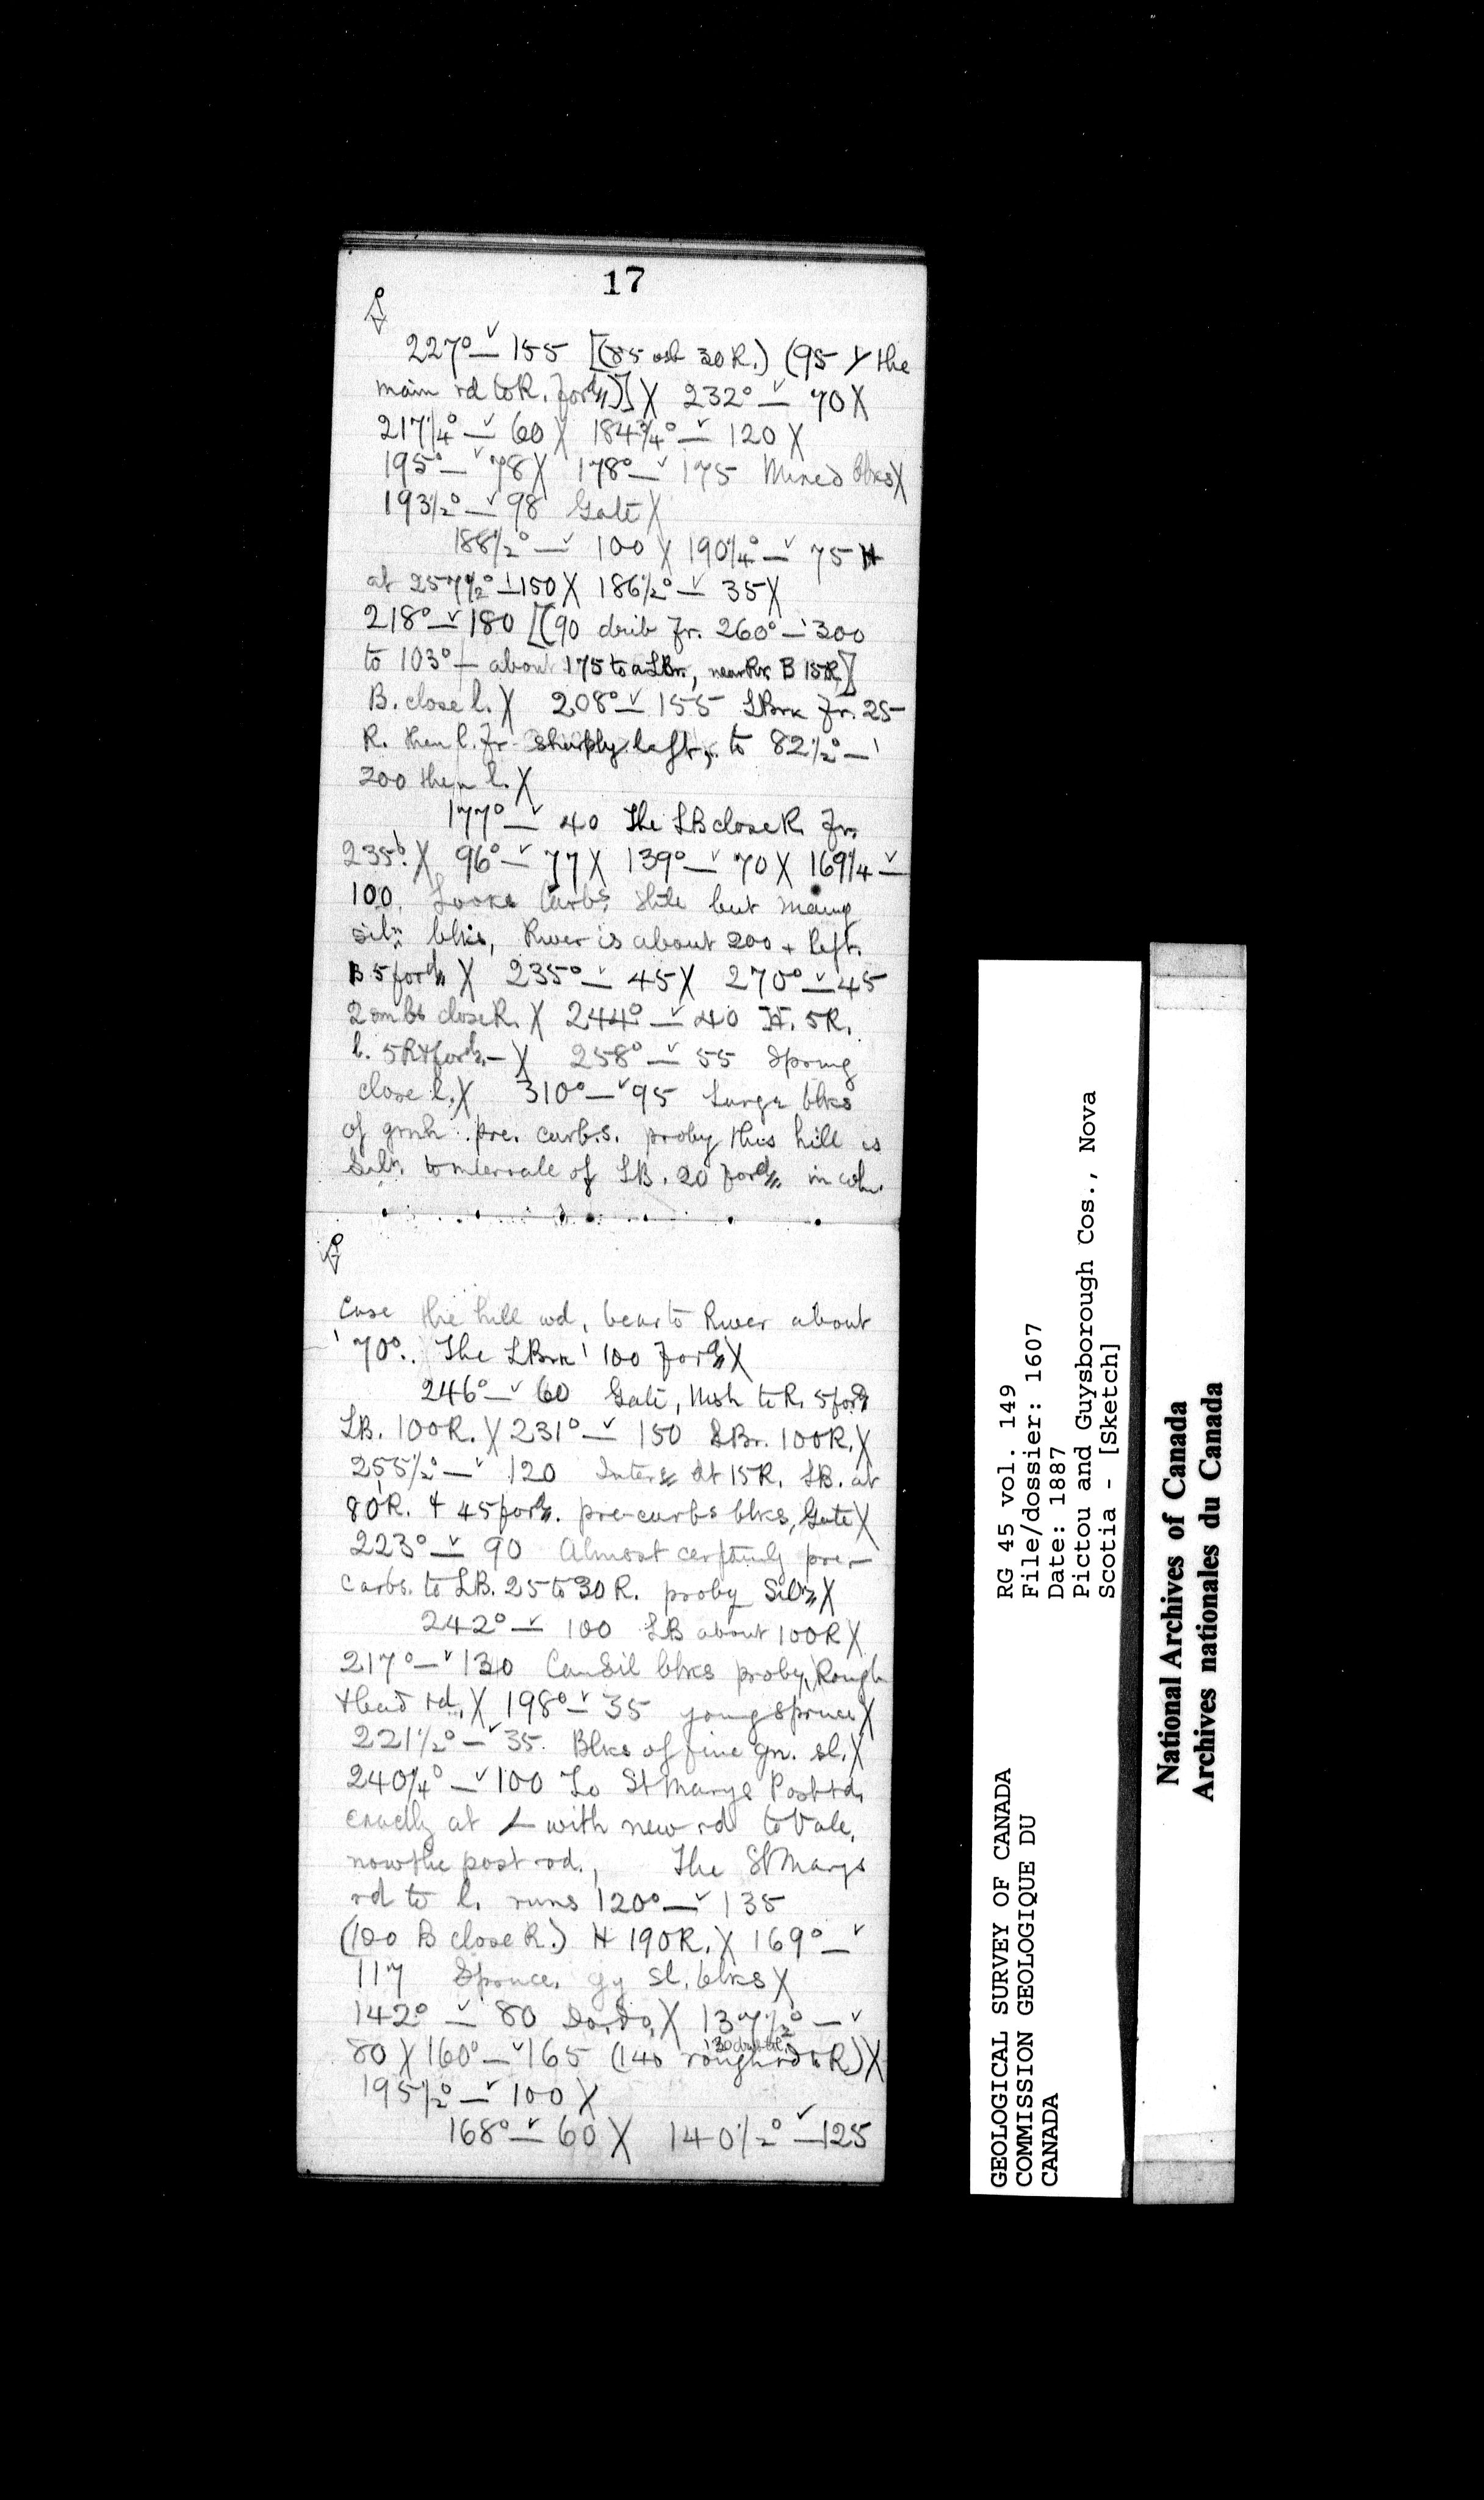 17
227° — ✓ 155 [(85 30 R.) (95 Y the
main rd to R. ford)] X 232° — ✓ 70 X
217 1/4° — ✓ 60 X 184 3/4° — ✓ 120 X
195° — ✓ 78 X 178° — ✓ 175 Mixed blks X
193 1/2° — ✓ 98 Gate X
188 1/2° — ✓ 100 X 190 1/4° — ✓ 75 H
at 257 1/2° — 150 X 186 1/2° — ✓ 35 X
218° — ✓ 180 [(90 fr. 260° — 300
to 103° — about 175 to a LBr, near B 15R.]
B. close l. X 208° — ✓ 155 LBrk fr. 25
R. then l. fr. sharply left, to 82 1/2° —
300 then l. X
177° — ✓ 40 The LB close R. fr.
235°. X 96° — ✓ 77 X 139° — ✓ 70 X 169 1/4 — ✓
100. Looks Carbs. but many
siln blks, River is about 200 + left.
B 5 ford X 235° — ✓ 45 X 270° — ✓ 45
2 close R. X 244° — ✓ 40 H. 5R.
l. 5R + ford. — X 258° — ✓ 55 Spring
close l. X 310° — ✓ 95 Large blks
of grnh pre. carbs. proby this hill is
Siln. to intervale of LB. 20 ford in wh.
case the hill wd, bear to River about
70°. The LBrk 100 ford X
246° — ✓ 60 Gate, to R. 5 ford
LB. 100R. X 231° — ✓ 150 LBr. 100R. X
255 1/2° — ✓ 120 Inters at 15R. LB. at
80R. + 45 ford. pre-carbs blks, Gate X
223° — ✓ 90 Almost certainly pre-
carbs. to LB. 25 to 30 R. proby Siln X
242° — ✓ 100 LB about 100R X
217° — ✓ 130 Cam Sil blks proby, Rough
+ bad rd. X 198° — ✓ 35 young spruce X
221 1/2° — ✓ 35. Blks of fine gn. sl. X
240 1/4° — ✓ 100 To St Marys Post rd.
exactly at ∠ with new rd to Vale,
now the post rd., The St Marys
rd to l. runs 120° — ✓ 135
(100 B close R.) H 190R. X 169° — ✓
117 Spruce, gy sl. blks X
142° — ✓ 80 Do, Do, X 137 1/2° — ✓
80 X 160° — ✓ 165 (140 rough rd to R) X
195 1/2° — ✓ 100 X
168° — ✓ 60 X 140 1/2° — ✓ 125
GEOLOGICAL SURVEY OF CANADA
COMMISSION GEOLOGIQUE DU
CANADA
RG 45 vol. 149
File/dossier: 1607
Date: 1887
Pictou and Guysborough Cos., Nova
Scotia - [Sketch]
National Archives of Canada
Archives nationales du Canada